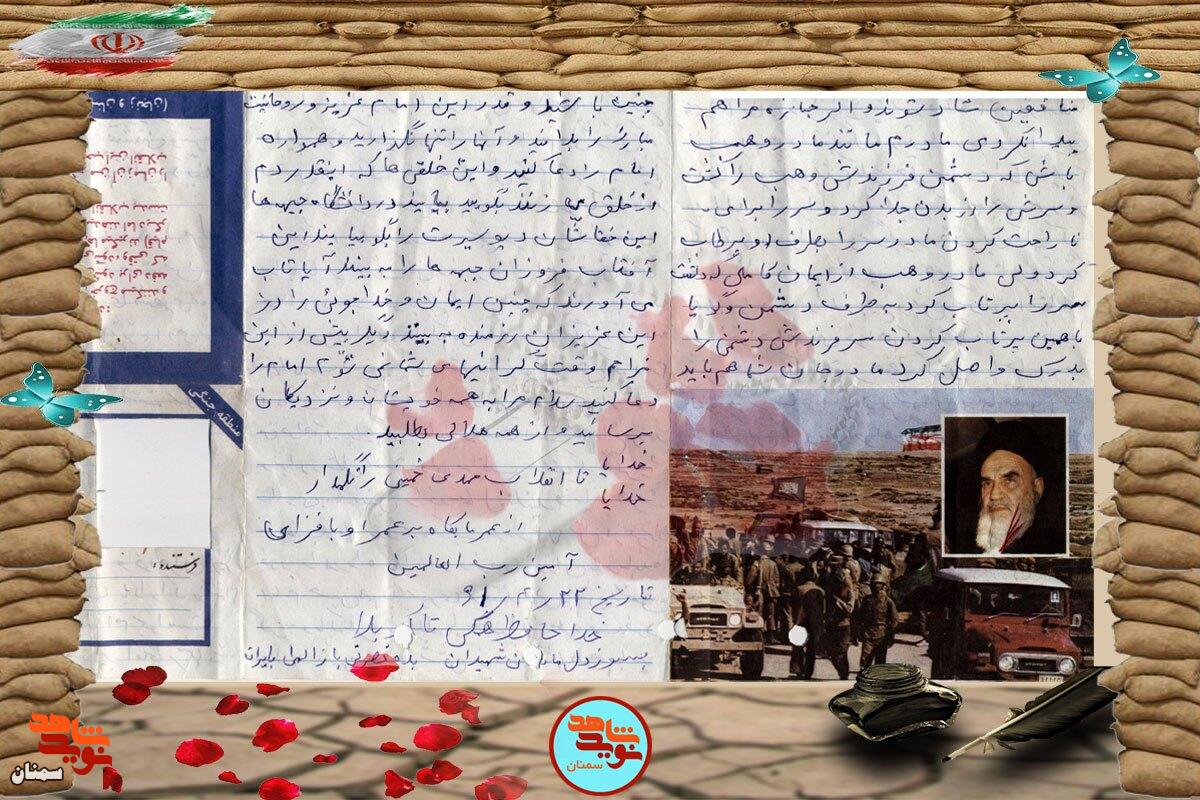 منافقین شاد شوند و اگر جنازه مرا هم
پیدا نکردی مادرم مانند مادر وهب
باش که دشمن فرزندش وهب را کشت
و سرش را از بدن جدا کرد و سر را برای
ناراحت کردن مادر سر را بطرف او پرتاب
کرد ولی مادر وهب از ایمان کاملی که داشت
سر را پرتاب کرد به طرف دشمن و گویا
با همین پرتاب کردن سر فرزندش دشمنی را
بدرک واصل کرد مادرجان شما هم باید
چنین باشید و قدر این امام عزیز و روحانیت
مبارز را بدانید و آنها را تنها نگذارید و همواره
امام را دعا کنید و این خلقی ها که اینقدر دم
از خلق می زنند بگویید بیایید در دانشگاه جبهه ها
این خفاشان دیو سیرت را بگو بیایند این
آفتاب فروزان جبهه ها را به بینند آیا تاب
می آورند که چنین ایمان و خدا جوئی را در
این عزیزان رزمنده به بینند دیگر بیش از این
مزاحم وقت گرانبهای شما نمی شوم امام را
دعا کنید سلام مرا به همه خویشان و نزدیکان
برسانید و از همه حلالی بطلبید
خدایا
خدایا تا انقلاب مهدی خمینی را نگهدار
از عمر ما بکاه بر عمر او بافزای
آمین رب العالمین
تاریخ ۲۲ر۴ر۶۱
خداحافظ همگی تا کربلا
بسوز دل مادران شهیدان
منطقه جنگی
فرستنده :
شاهد
نوید
سمنان
شاهد
نوید
سمنان